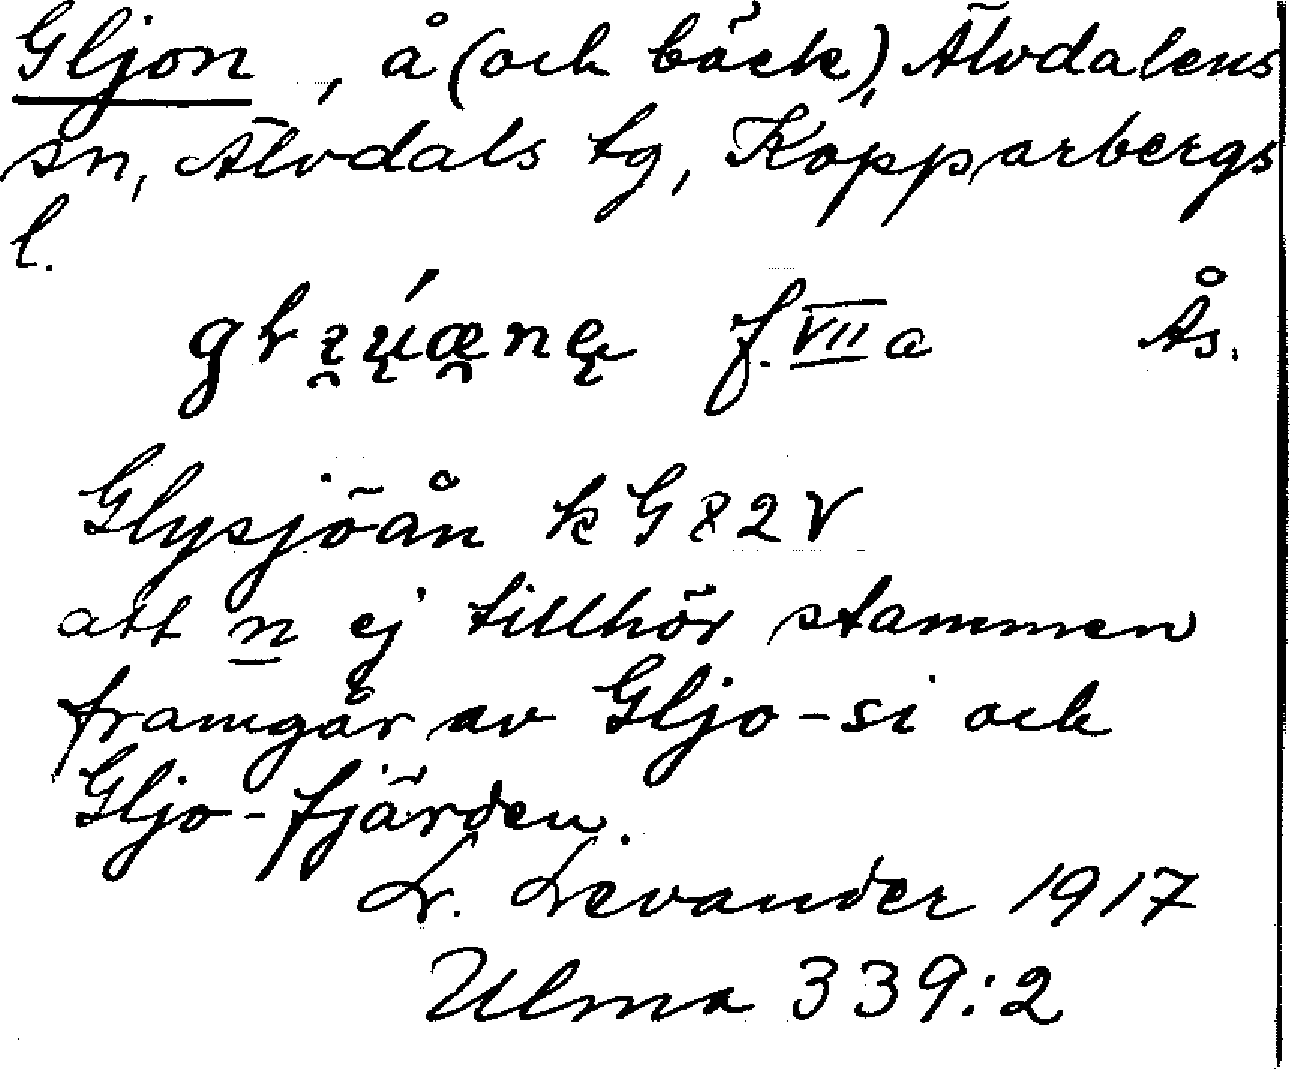 Gljon, å (och bäck), Älvdalens
sn, Älvdals tg, Kopparbergs
l.
f. VII a Ås.
Glysjöån k G 82 V
att n ej tillhör stammen
framgår av Gljo-si och
Gljo-fjärden.
L. Levander 1917
Ulma 339:2